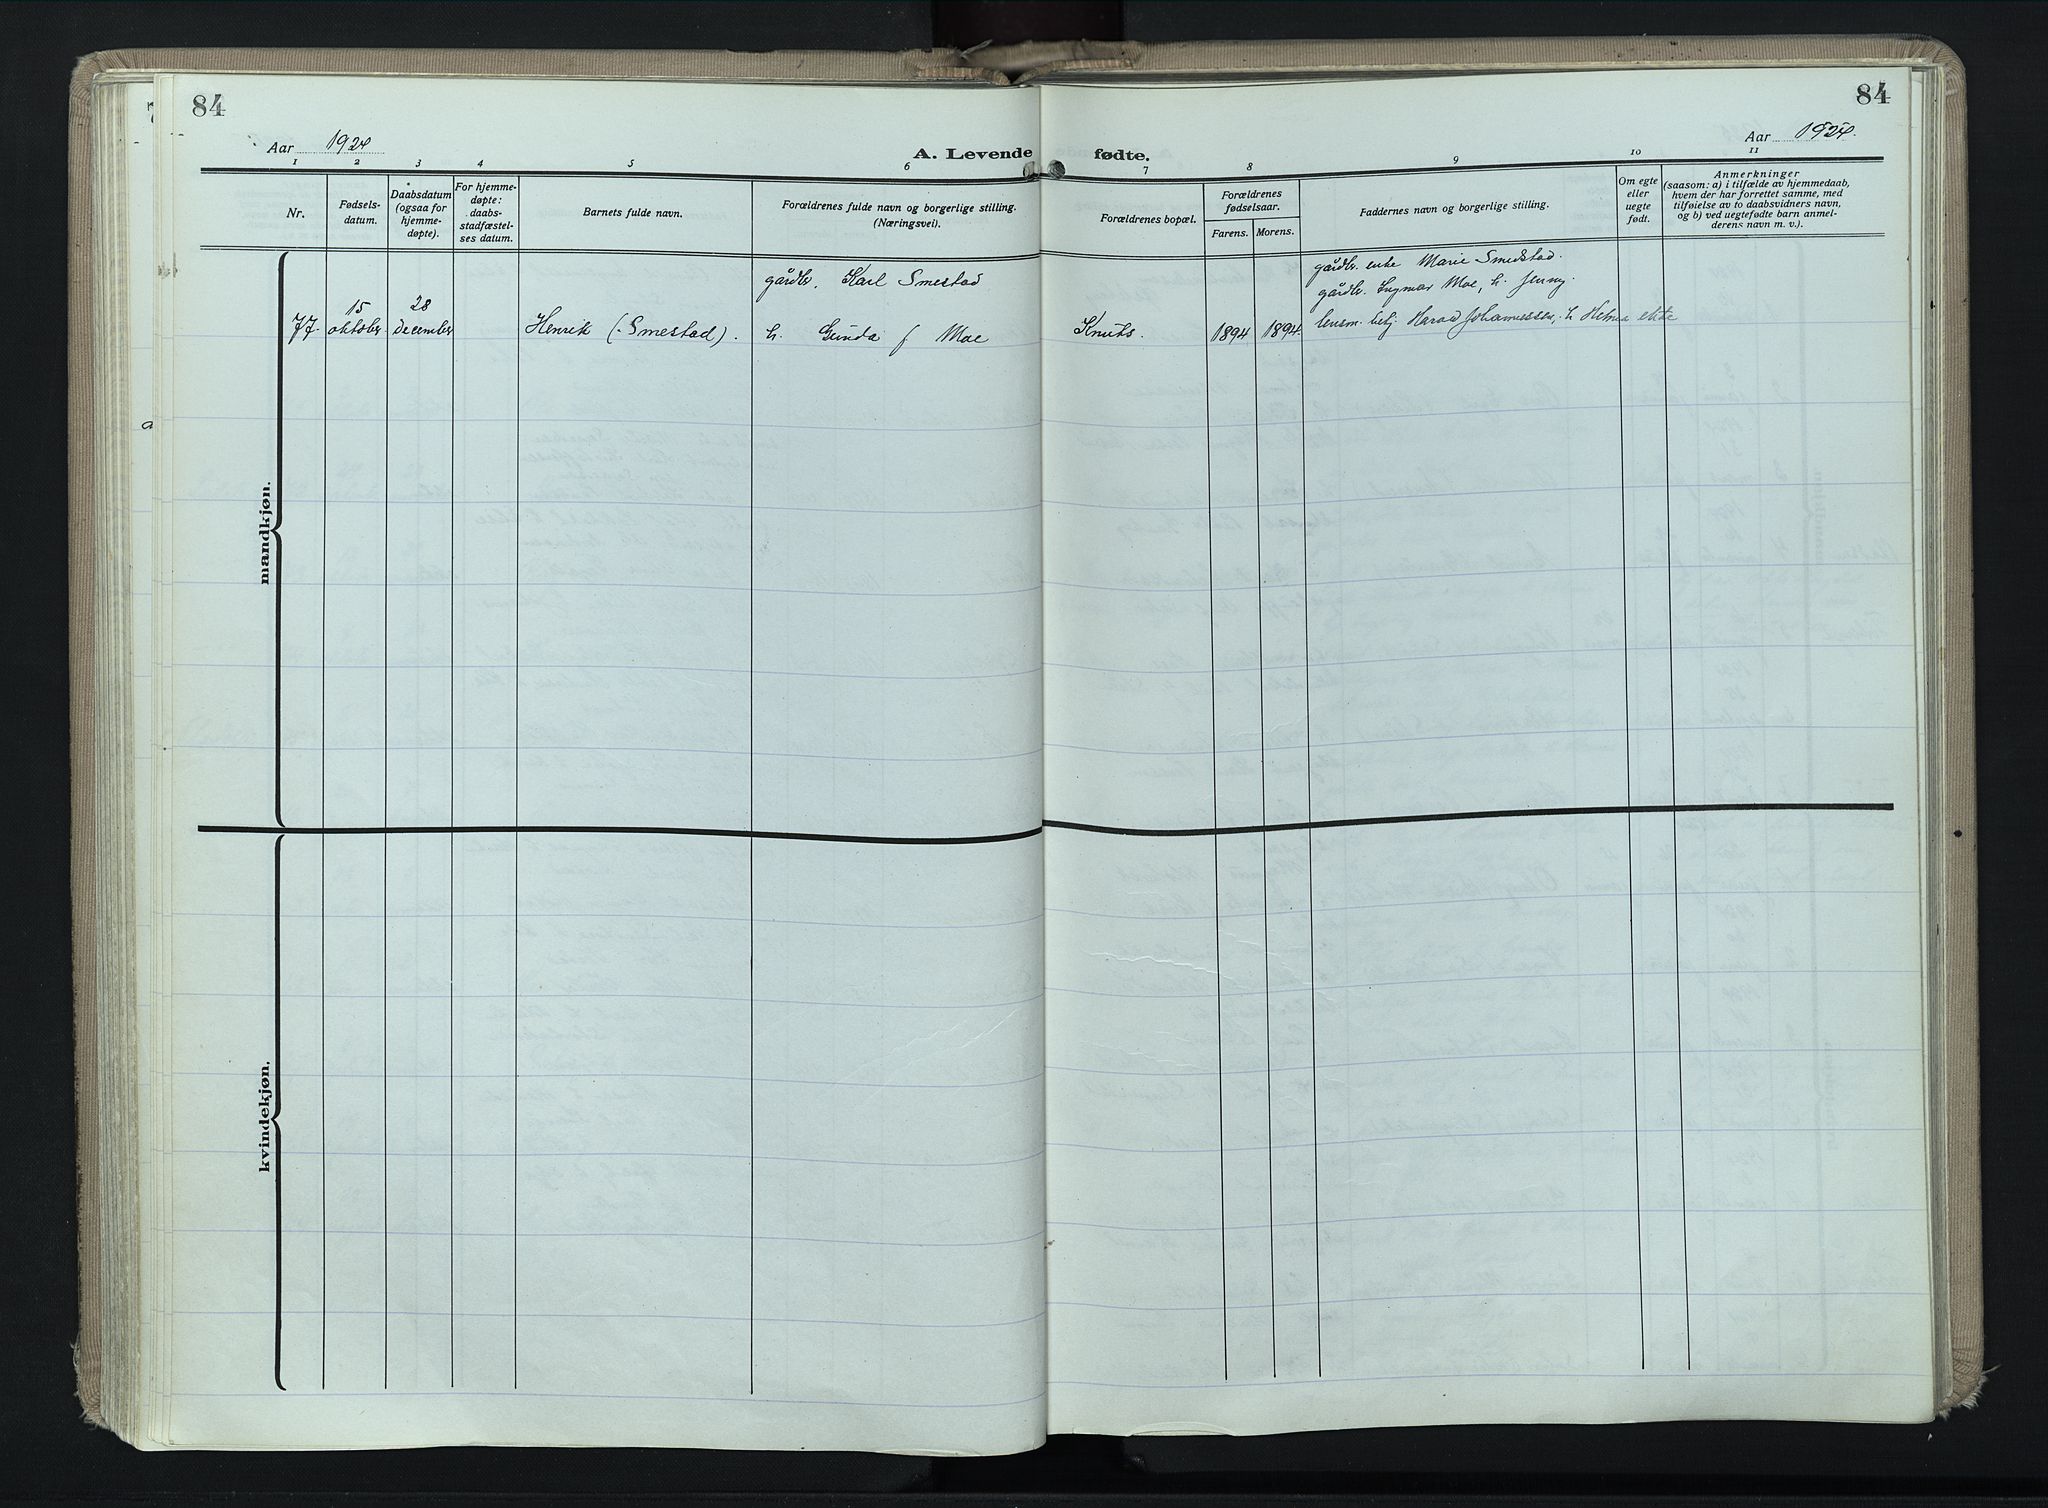 84
84
Aar 1924
Aar 1924.
A. Levende fødte.
1 2 3 4 5 6 7 8 9 10 11
Nr.
Fødsels-
datum.
Daabsdatum
(ogsaa for
hjemme-
døpte).
For hjemme-
døpte:
daabs-
stadfæstel-
ses datum.
Barnets fulde navn.
Forældrenes fulde navn og borgerlige stilling.
(Næringsvei).
Forældrenes bopæl.
Forældrenes
fødselsaar.
Farens. Morens.
Faddernes navn og borgerlige stilling.
Om egte
eller
uegte
født.
Anmerkninger
(saasom: a) i tilfælde av hjemmedaab,
hvem der har forrettet samme, med
tilføielse av to daabsvidners navn,
og b) ved uegtefødte barn anmel-
derens navn m. v.).
mandkjøn.
77.
15
oktober
28
december
Henrik (Smestad).
gårdbr. Karl Smestad
h. Gunda f Moe
Knuts.
1894
1894.
gårdbr. enke Marie Smedstad.
gårdbr. Ingmar Moe, h. Jenny.
lensm. betj. Harald Johannessen, h Helma
ekte
kvindekjøn.